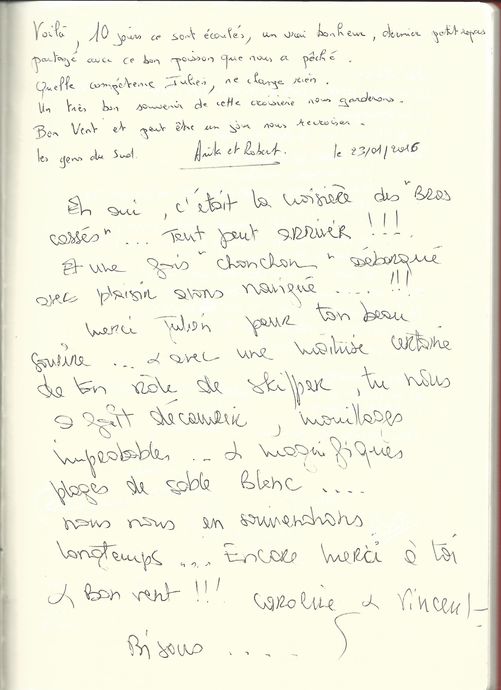 Voilà, 10 jours ce sont écoulés, un vrai bonheur, dernier petit repas
partagé avec ce bon poisson que nous a pêché.
Quelle compétence Julien, ne change rien.
Un très bon souvenir de cette croisière nous garderons.
Bon Vent et peut être un jour nous recroiser.
les gens du Sud. Anita et Robert. le 23/01/2016
Eh oui, c'était la croisière des "Bras
cassés" ... Tout peut arriver !!!
Et une fois "chonchon" débarqué
avec plaisir avons navigué .... !!!
merci Julien pour ton beau
sourire ... & avec une maîtrise certaine
de ton rôle de skipper, tu nous
a fait découvrir, mouillages
improbables ... & magnifiques
plages de sable Blanc ....
nous nous en souviendrons
longtemps ... Encore merci à toi
& Bon vent !!! Caroline & Vincent
Bisous .....